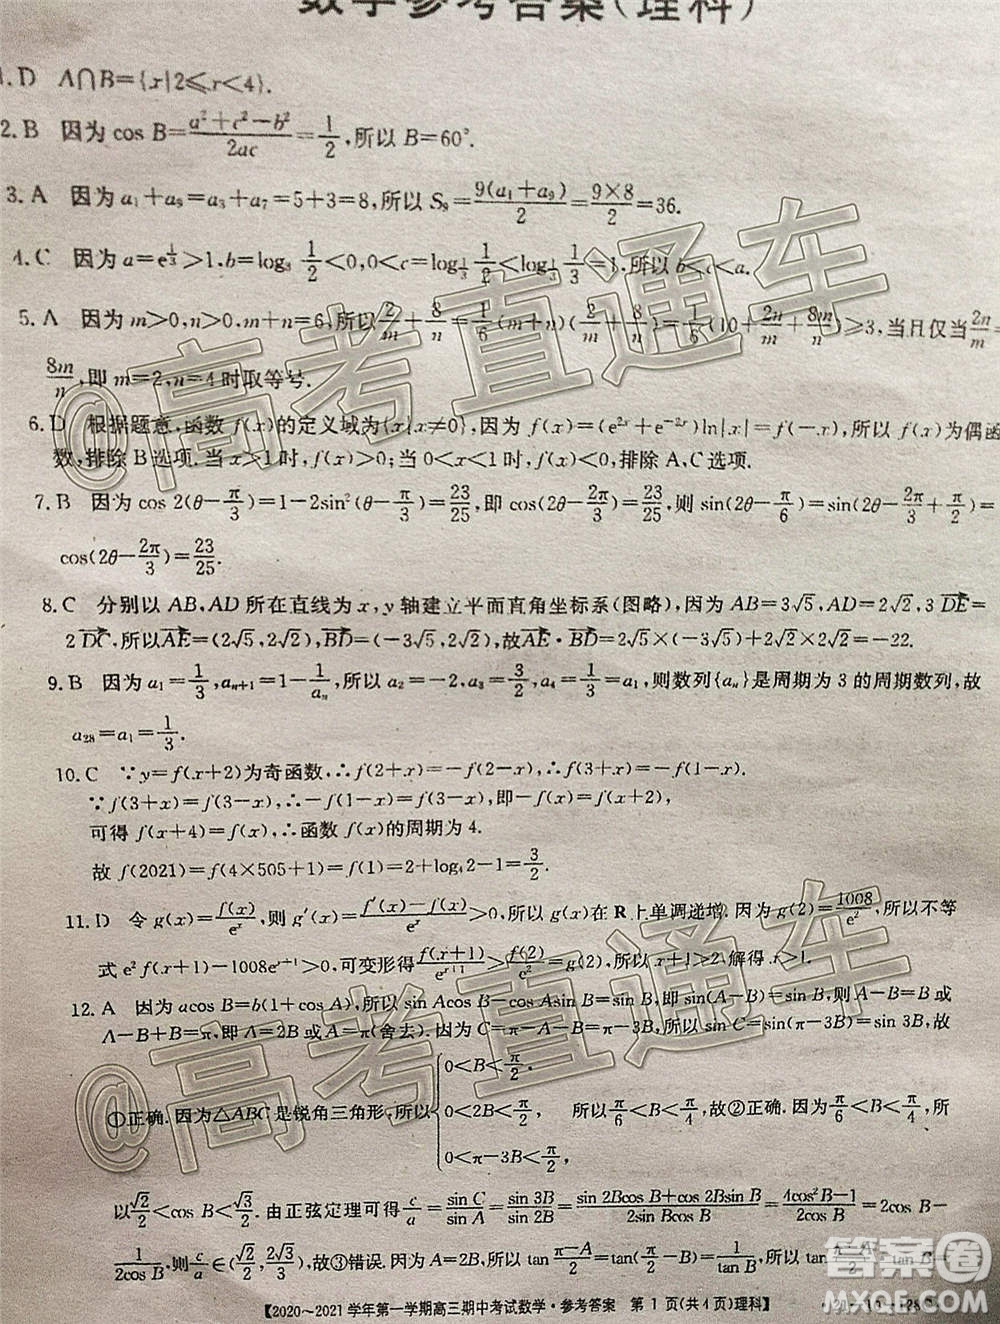 数学参考答案(理科)
1. D A∩B={x|2≤x<4}.
2. B 因为 cos B=\frac{a²+c²−b²}{2ac}=\frac{1}{2},所以 B=60°.
3. A 因为 a₁+a₉=a₃+a₇=5+3=8,所以 S₉=\frac{9(a₁+a₉)}{2}=\frac{9×8}{2}=36.
4. C 因为 a=e^{\frac{1}{3}}>1,b=log₃\frac{1}{2}<0,0<c=log_{\frac{1}{3}}\frac{1}{2}<log_{\frac{1}{3}}\frac{1}{3}=1,所以 b<c<a.
5. A 因为 m>0,n>0,m+n=6,所以\frac{2}{m}+\frac{8}{n}=\frac{1}{6}(m+n)(\frac{2}{m}+\frac{8}{n})=\frac{1}{6}(10+\frac{2n}{m}+\frac{8m}{n})≥3,当且仅当\frac{2n}{m}=
\frac{8m}{n},即 m=2,n=4 时取等号.
6. D 根据题意,函数 f(x)的定义域为{x|x≠0},因为 f(x)=(e^{2x}+e^{−2x})ln|x|=f(−x),所以为偶函
数,排除 B 选项.当 x>1 时,f(x)>0;当 0<x<1 时,f(x)<0,排除 A、C 选项.
7. B 因为 cos 2(θ−\frac{π}{3})=1−2sin²(θ−\frac{π}{3})=\frac{23}{25},即 cos(2θ−\frac{2π}{3})=\frac{23}{25},则 sin(2θ−\frac{π}{6})=sin(2θ−\frac{2π}{3}+\frac{π}{2})=
cos(2θ−\frac{2π}{3})=\frac{23}{25}.
8. C 分别以 AB,AD 所在直线为 x,y 轴建立平面直角坐标系(图略),因为 AB=3√5,AD=2√2,3\overrightarrow{DE}=
2\overrightarrow{DC},所以\overrightarrow{AE}=(2√5,2√2),\overrightarrow{BD}=(−3√5,2√2),故\overrightarrow{AE}·\overrightarrow{BD}=2√5×(−3√5)+2√2×2√2=−22.
9. B 因为 a₁=\frac{1}{3},a_{n+1}=1−\frac{1}{a_n},所以 a₂=−2,a₃=\frac{3}{2},a₄=\frac{1}{3}=a₁,则数列{a_n}是周期为 3 的周期数列,故
a₂₈=a₁=\frac{1}{3}.
10. C ∵y=f(x+2)为奇函数,∴f(2+x)=−f(2−x),∴f(x)=−f(4−x).
∵f(3+x)=f(3−x),∴−f(1−x)=f(3−x),即−f(x)=f(x+2),
可得 f(x+4)=f(x),∴函数 f(x)的周期为 4.
故 f(2021)=f(4×505+1)=f(1)=2+log₄2−1=\frac{3}{2}.
11. D 令 g(x)=\frac{f(x)}{e^x},则 g′(x)=\frac{f′(x)−f(x)}{e^x}>0,所以 g(x)在 R 上单调递增.因为 g(2)=\frac{1008}{e²},所以不等
式 e²f(x+1)−1008e^{x+1}>0,可变形得\frac{f(x+1)}{e^{x+1}}>\frac{f(2)}{e²}=g(2),所以 x+1>2.解得 x>1.
12. A 因为 acos B=b(1+cos A),所以 sin Acos B−cos Asin B=sin B,即 sin(A−B)=sin B,所以 A=2B 或
A−B+B=π,即 A=2B 或 A=π(舍去).因为 C=π−A−B=π−3B,所以 sin C=sin(π−3B)=sin 3B,故
①正确.因为△ABC是锐角三角形,所以{0<B<\frac{π}{2}, 0<2B<\frac{π}{2}, 0<π−3B<\frac{π}{2}, 所以\frac{π}{6}<B<\frac{π}{4},故②正确.因为\frac{π}{6}<B<\frac{π}{4},所
以\frac{√2}{2}<cos B<\frac{√3}{2}.由正弦定理可得\frac{c}{a}=\frac{sin C}{sin A}=\frac{sin 3B}{sin 2B}=\frac{sin 2Bcos B+cos 2Bsin B}{2sin Bcos B}=\frac{4cos²B−1}{2cos B}=2cos B−
\frac{1}{2cos B},则\frac{c}{a}∈(\frac{√2}{2},\frac{2√3}{3}),故③错误.因为 A=2B,所以 tan\frac{π−A}{2}=tan(\frac{π}{2}−B)=\frac{1}{tan B},所以
【2020～2021学年第一学期高三期中考试数学·参考答案 第1页(共4页)理科】
@高考直通车
@高考直通车
答案圈
MXQE.COM